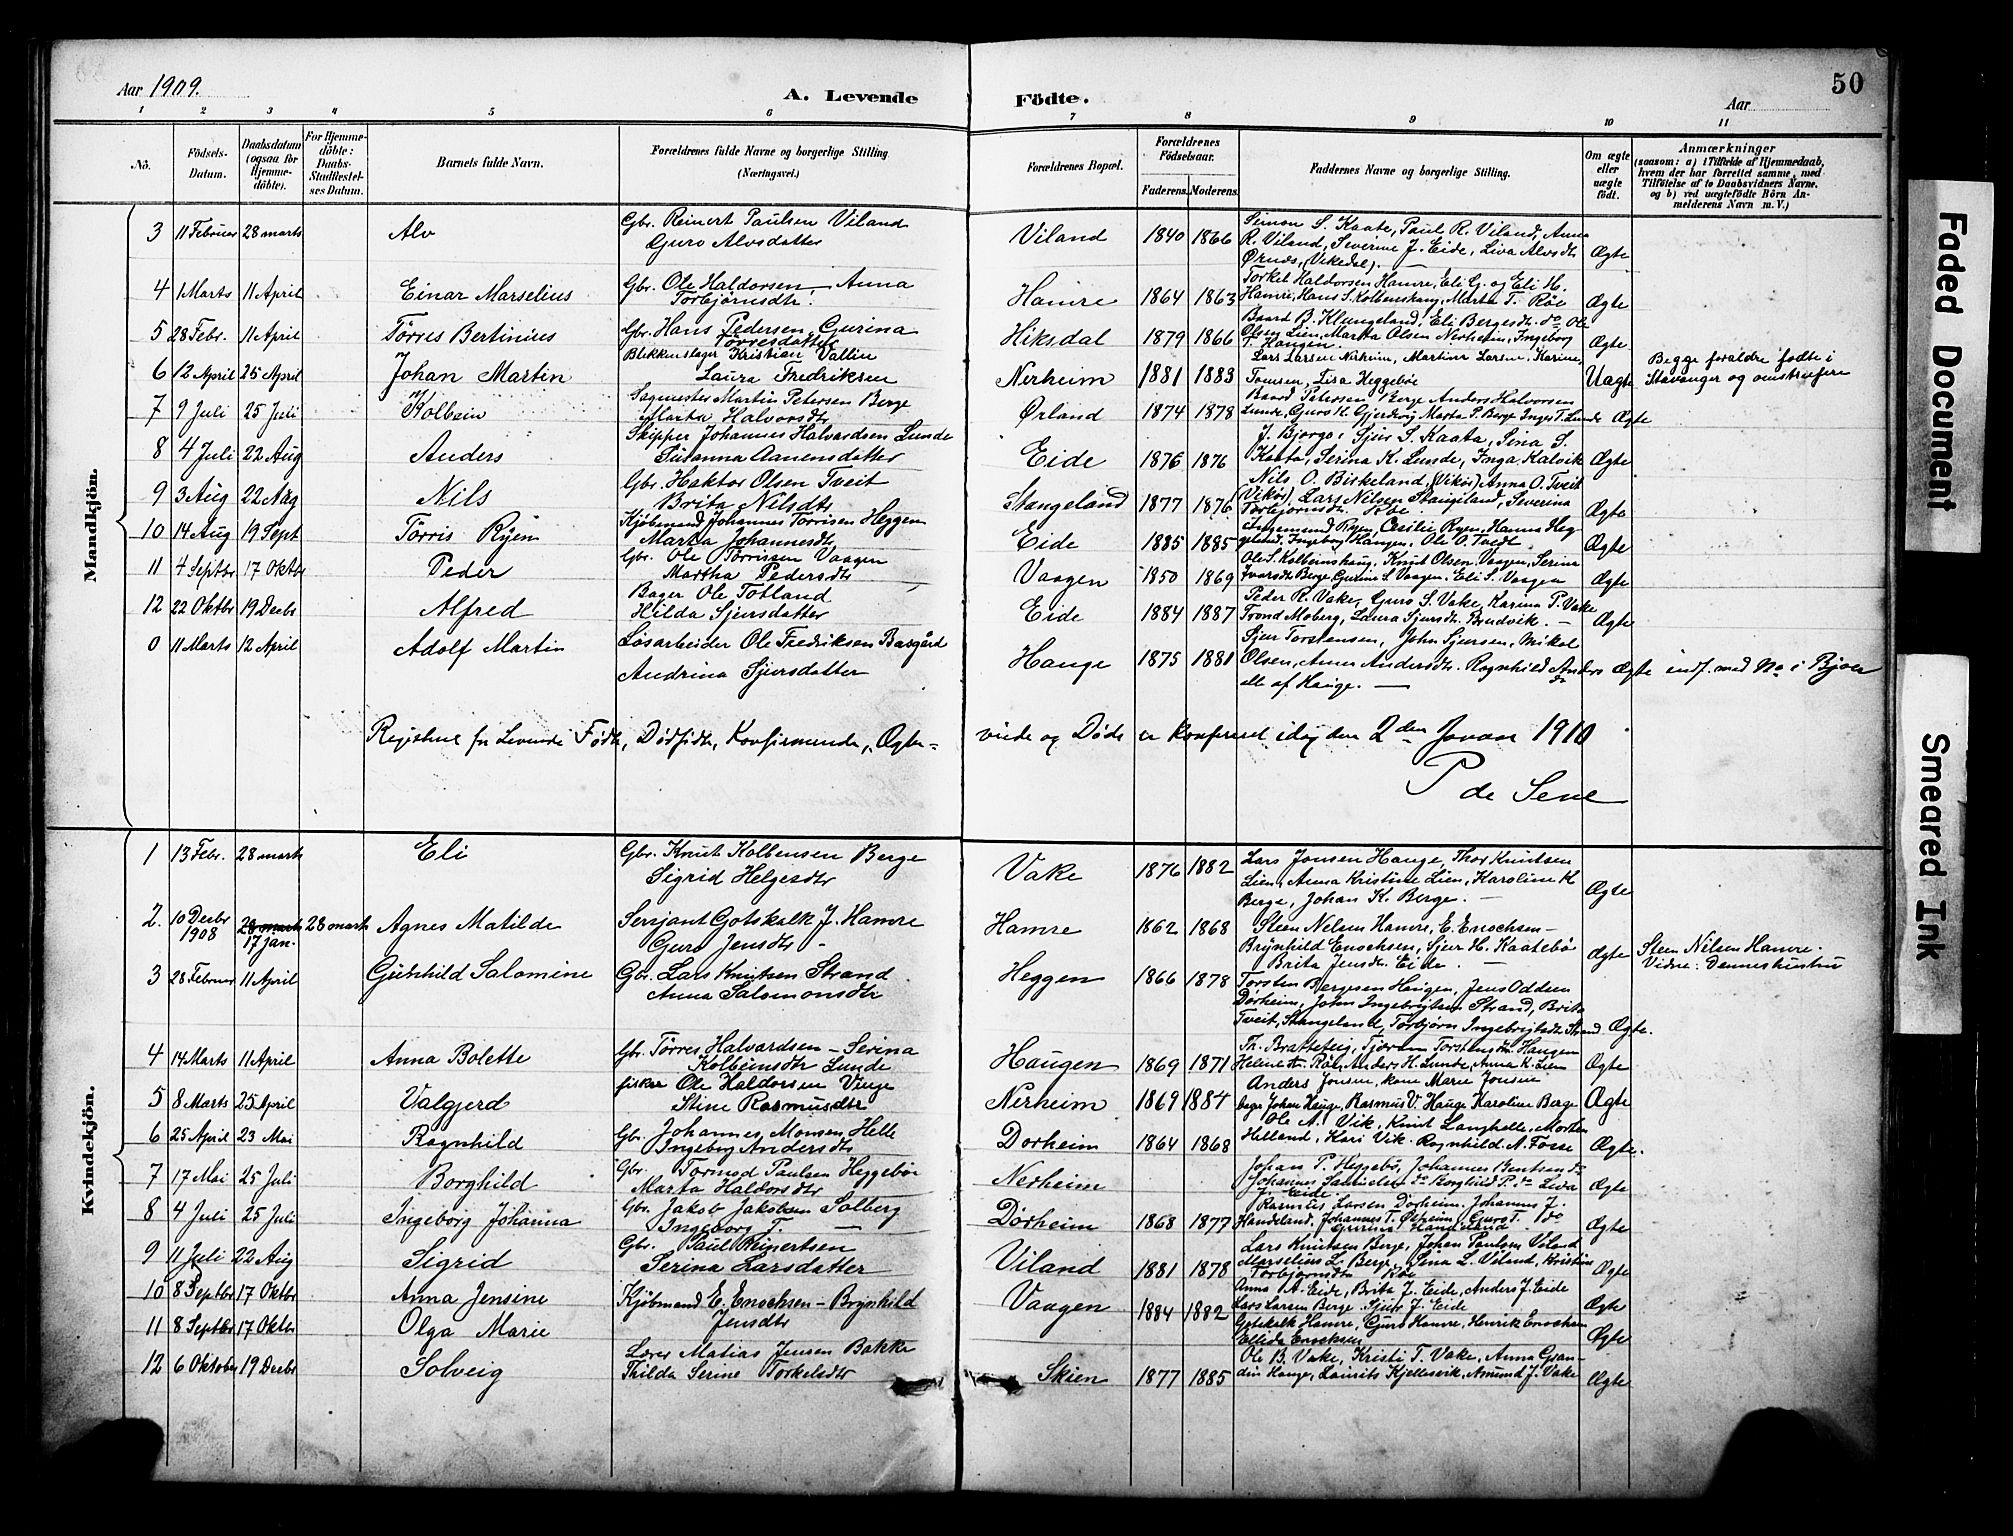 Aar 1909.
A. Levende Födte.
Aar
50
1 2 3 4 5 6 7 8 9 10 11
Nô.
Födsels-Datum.
Daabsdatum (ogsaa for Hjemme-döbte).
For Hjemme-döbte: Daabs-Stadfæstel-ses Datum.
Barnets fulde Navn.
Forældrenes fulde Navne og borgerlige Stilling (Næringsvei.)
Forældrenes Bopæl.
Forældrenes Födselsaar.
Faderens. Moderens.
Faddernes Navne og borgerlige Stilling.
Om ægte eller uægte födt.
Anmærkninger
(saasom: a) i Tilfælde af Hjemmedaab, hvem der har forrettet samme, med Tilföielse af to Daabsvidners Navne. og b) ved uægtefödte Börn An-melderens Navn m. V.)
Mandkjön.
3 11 Februar 28 marts Alv Gbr. Reinert Paulsen Viland
Guro Alvsdatter Viland 1840 1866 Simon S. Kaate, Paul R. Viland, Anna
R. Viland, Severine J. Eide, Liva Alvsdtr
Ørnes, (Vikedal). Ægte
4 1 Marts 11 April Einar Marselius Gbr. Ole Haldorsen – Anna
Torbjørnsdtr. Hamre 1864 1863 Torkel Haldorsen Hamre, Eli G. og Eli H.
Hamre, Hans T. Kolbenshaug, Marta T. Røe Ægte
5 28 Febr. 11 April Tørres Bertinius Gbr. Hans Pedersen, Gurina
Tørresdatter Hiksdal 1879 1866 Baard B. Klungeland, Eli Bergesdtr. do Ole
Olsen Lien, Marta Olsen Nerheim, Ingeborg
T. Haugen Ægte
6 12 April 25 April Johan Martin Blikkenslager Kristian Vallin
Laura Fredriksen Nerheim 1881 1883 Lars Larsen Nerheim, Martine Larsen, Karine
Tomsen, Lisa Heggebøe Uægte Begge foraldre fodte i
Stavanger og omstreifere
7 9 Juli 25 Juli Kolbein Sagmester Martin Petersen Berge
Marta Halvorsdtr Ørland 1874 1878 Baard Petersen Berge Anders Halvorsen
Lunde, Guro K. Gjerdevig Marta P. Berge Inger T. Lunde Ægte
8 4 Juli 22 Aug Anders Skipper Johannes Halvardsen Lunde
Susanna Aanensdatter Eide 1876 1876 J. Bjorgo, Sjur S. Kaata, Sena S.
Kaata, Serina K. Lunde, Inga Kalvik Ægte
9 3 Aug 22 Aug Nils Gbr. Haktor Olsen Tveit
Brita Nilsdtr Stangeland 1877 1876 Nils O. Birkeland, (Vikør) Anna O. Tveit
(Vikør), Lars Nilsen Stangeland, Severina
Torbjornsdtr. Røe. Ægte
10 14 Aug 19 Sept Tørris Ryen Kjøbmand Johannes Torrisen Heggen
Marta Johannesdtr Eide 1885 1885 Angemund Ryen, Cecilie Ryen, Hanna Heg
geland, Ingeborg Haugen, Ole O. Tvedt Ægte
11 4 Septbr 17 Oktbr Peder Gbr. Ole Tørrissen Vaagen
Martha Pedersdtr Vaagen 1850 1869 Ole S. Kolbeinshaug, Knut Olsen Vaagen, Serina
Ivarsdtr Berge, Gurine S. Vaagen, Eli S. Vaagen Ægte
12 22 Oktbr 19 Decbr Alfred Bager Ole Totland
Hilda Sjursdatter Eide 1884 1887 Peder R. Vake, Guro S. Vake, Karina P. Vake
Trond Moberg, Laura Sjursdtr. Budvik. Ægte
0 11 Marts 12 April Adolf Martin Løsarbeider Ole Fredriksen Basgård
Andrina Sjursdatter Hauge 1875 1881 Sjur Torstensen, John Sjursen, Mikal
Olsen, Anna Andersdtr. Ragnhild Anders do
alle af Hauge. Ægte indf. med No i Bjoa
Registrene for Levende Fødte, Dødfødte, Konfirmerede, Ægte-
viede og Døde er konfereret idag den 2den Januar 1910
P de Seve
Kvindekjön.
1 13 Febr. 28 marts Eli Gbr. Knut Kolbensen Berge
Sigrid Helgesdtr Vake 1876 1882 Lars Jonsen Hauge, Thor Knutsen
Lien, Anna Kristine Lien, Karoline K
Berge, Johan K. Berge. Ægte
2. 10 Decbr 1908 28 marts 17 jan. 28 marts Agnes Matilde Sersjant Gotskalk J. Hamre
Guro Jensdtr Hamre 1862 1868 Steen Nelsen Hamre, E. Enochsen –
Brynhild Enochsen, Sjur H. Kaatebø
Brita Jensdtr. Eide. Ægte Steen Nilsen Hamre.
Vidne:
3 28 Februar 11 April Gunhild Salomine Gbr. Lars Knutsen Strand
Anna Salomonsdtr Heggen 1866 1878 Torsten Bergesen Haugen, Jens Oddsen
Dørheim, John Ingebrigtsen Strand, Brita
Tveit, Stangeland, Torbjørn Ingebrigtsdtr Strand Ægte.
4 14 Marts 11 April Anna Bolette Gbr. Tørres Halvardsen – Serina
Kolbeinsdtr Lunde Haugen 1869 1871 Th. Bratteteig, Tjøran Torstensdtr. Haugen
Heline Røe, Anders H. Lunde, Anna K. Lien Ægte
5 8 Marts 25 April Valgjerd fisker Ole Haldorsen Vinge
Stine Rasmusdtr Nerheim 1869 1884 Anders Jonsen, kone Marie Jonsen
bager Johan Hauge, Rasmus V. Hauge Karoline Berge Ægte
6 25 April 23 Mai Ragnhild Gbr. Johannes Monsen Helle
Ingeborg Andersdtr Dorheim 1864 1868 Ole A. Vik, Knut Langhelle, Morten
Helland, Kari Vik. Rognhild. N. Fosse Ægte.
7 17 Mai 25 Juli Borghild Gbr. Tormod Paulsen Heggebøe
Marta Haldorsdtr Nerheim Johans P. Heggebø, Johannes Bentsen do
Johannes Samuelsen do Borghild P. do Liva
J. Eide Ægte
8 4 Juli 25 Juli Ingeborg Johanna Gbr. Jakob Jakobsen Solberg
Ingeborg T. Dørheim 1868 1877 Rasmus Larsen Dorheim, Johannes J.
Handeland, Johannes T. Østheim, Guro T. do
Gurina Handeland Ægte
9 11 Juli 22 Aug Sigrid Gbr. Paul Reinertsen
Serina Larsdatter Viland 1881 1878 Lars Knutsen Berge, Johan Paulsen Viland
Marselius L. Berge, Sena L. Viland, Kristine
Torbjornsdtr Røe Ægte
10 8 Septbr 17 Oktbr Anna Jensine Kjøbmand E. Enochsen – Brynhild
Jensdtr Vaagen 1884 1882 Anna A. Eide, Brita J. Eide, Anders J. Eide
Lars Larsen Berge. Sjur J. Eide Ægte
11 8 Septbr 17 Oktbr Olga Marie Gotskalk Hamre, Guro Hamre, Henrik Enochsen
Ellida Enocksen Ægte
12 6 Oktober 19 Decbr Solveig Lærer Matias Jensen Bakke
Thilda Serine Torkelsdtr Skien 1877 1885 Ole B. Vake, Kristi T. Vake, Anna Gran-
din Hauge, Laurits Kjellesvik, Amund J. Vake Ægte
Faded Document
Smeared Ink